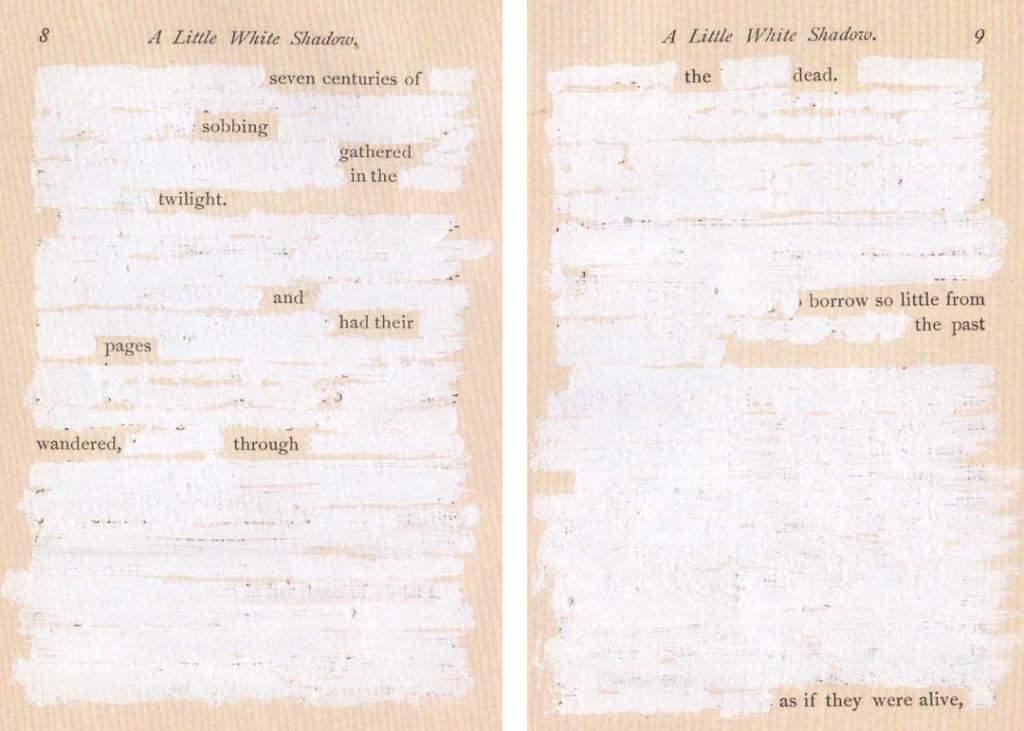 8 A Little White Shadow.
seven centuries of
sobbing
gathered
in the
twilight.
and
had their
pages
wandered, through
A Little White Shadow. 9
the dead.
borrow so little from
the past
as if they were alive,